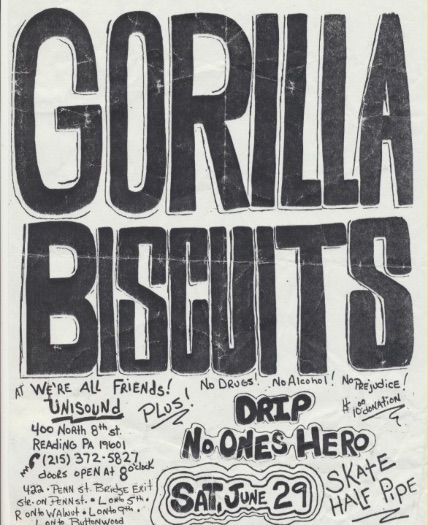 GORILLA
BISCUITS
AT WE'RE ALL FRIENDS!
UNISOUND
400 NORTH 8th st.
READING PA 19001
(215) 372-5827
doors OPEN AT 8 o'clock
422 - PENN st. BRIDGE EXIT
ste-on PENN st. • L on to 5th •
R on to WALNUT • L on to 9th •
L on to Buttonwood
PLUS!
No DRUGS! No Alcohol! No Prejudice!
DRIP
No ONES HERO
$10.00 donation
SAT, JUNE 29
SKATE
HALF PIPE